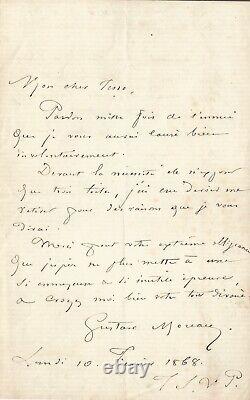 Mon cher Tesse,
Pardon mille fois de l'ennui
que je vous aurai causé bien
involontairement.
Devant la nécessité de n'exposer
que trois toiles, j'ai cru devoir me
retirer pour des raisons que je vous
dirai.
Merci pour votre extrême obligeance
que j'espère ne plus mettre à une
si ennuyeuse et si inutile épreuve
et croyez moi bien votre tout dévoué
Gustave Moreau
Lundi 10 1868.
T. S. V. P.